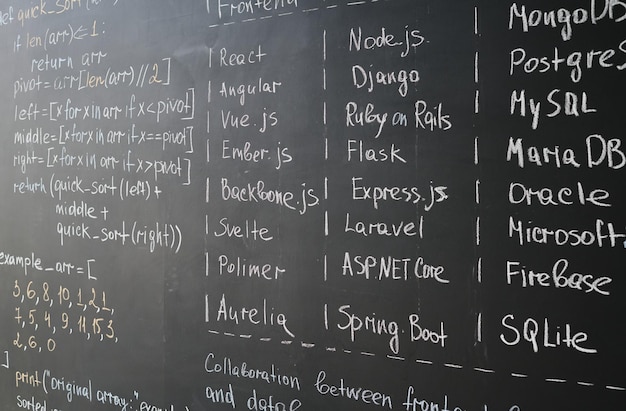 def quick_sort(arr):
if len(arr)≤1:
return arr
pivot=arr[len(arr)//2]
left=[x for x in arr if x<pivot]
middle=[x for x in arr if x==pivot]
right=[x for x in arr if x>pivot]
return(quick_sort(left)+
middle+
quick_sort(right))
example_arr=[
3,6,8,10,1,2,1,
7,5,4,9,11,15,3,
2,6,0
]
print("original array:",
sorted
Frontend
React
Angular
Vue.js
Ember.js
Backbone.js
Svelte
Polimer
Aurelia
Node.js
Django
Ruby on Rails
Flask
Express.js
Laravel
ASP.NET Core
Spring Boot
MongoDB
Postgres
MySQL
MariaDB
Oracle
Microsoft
Firebase
SQLite
Collaboration between front
and